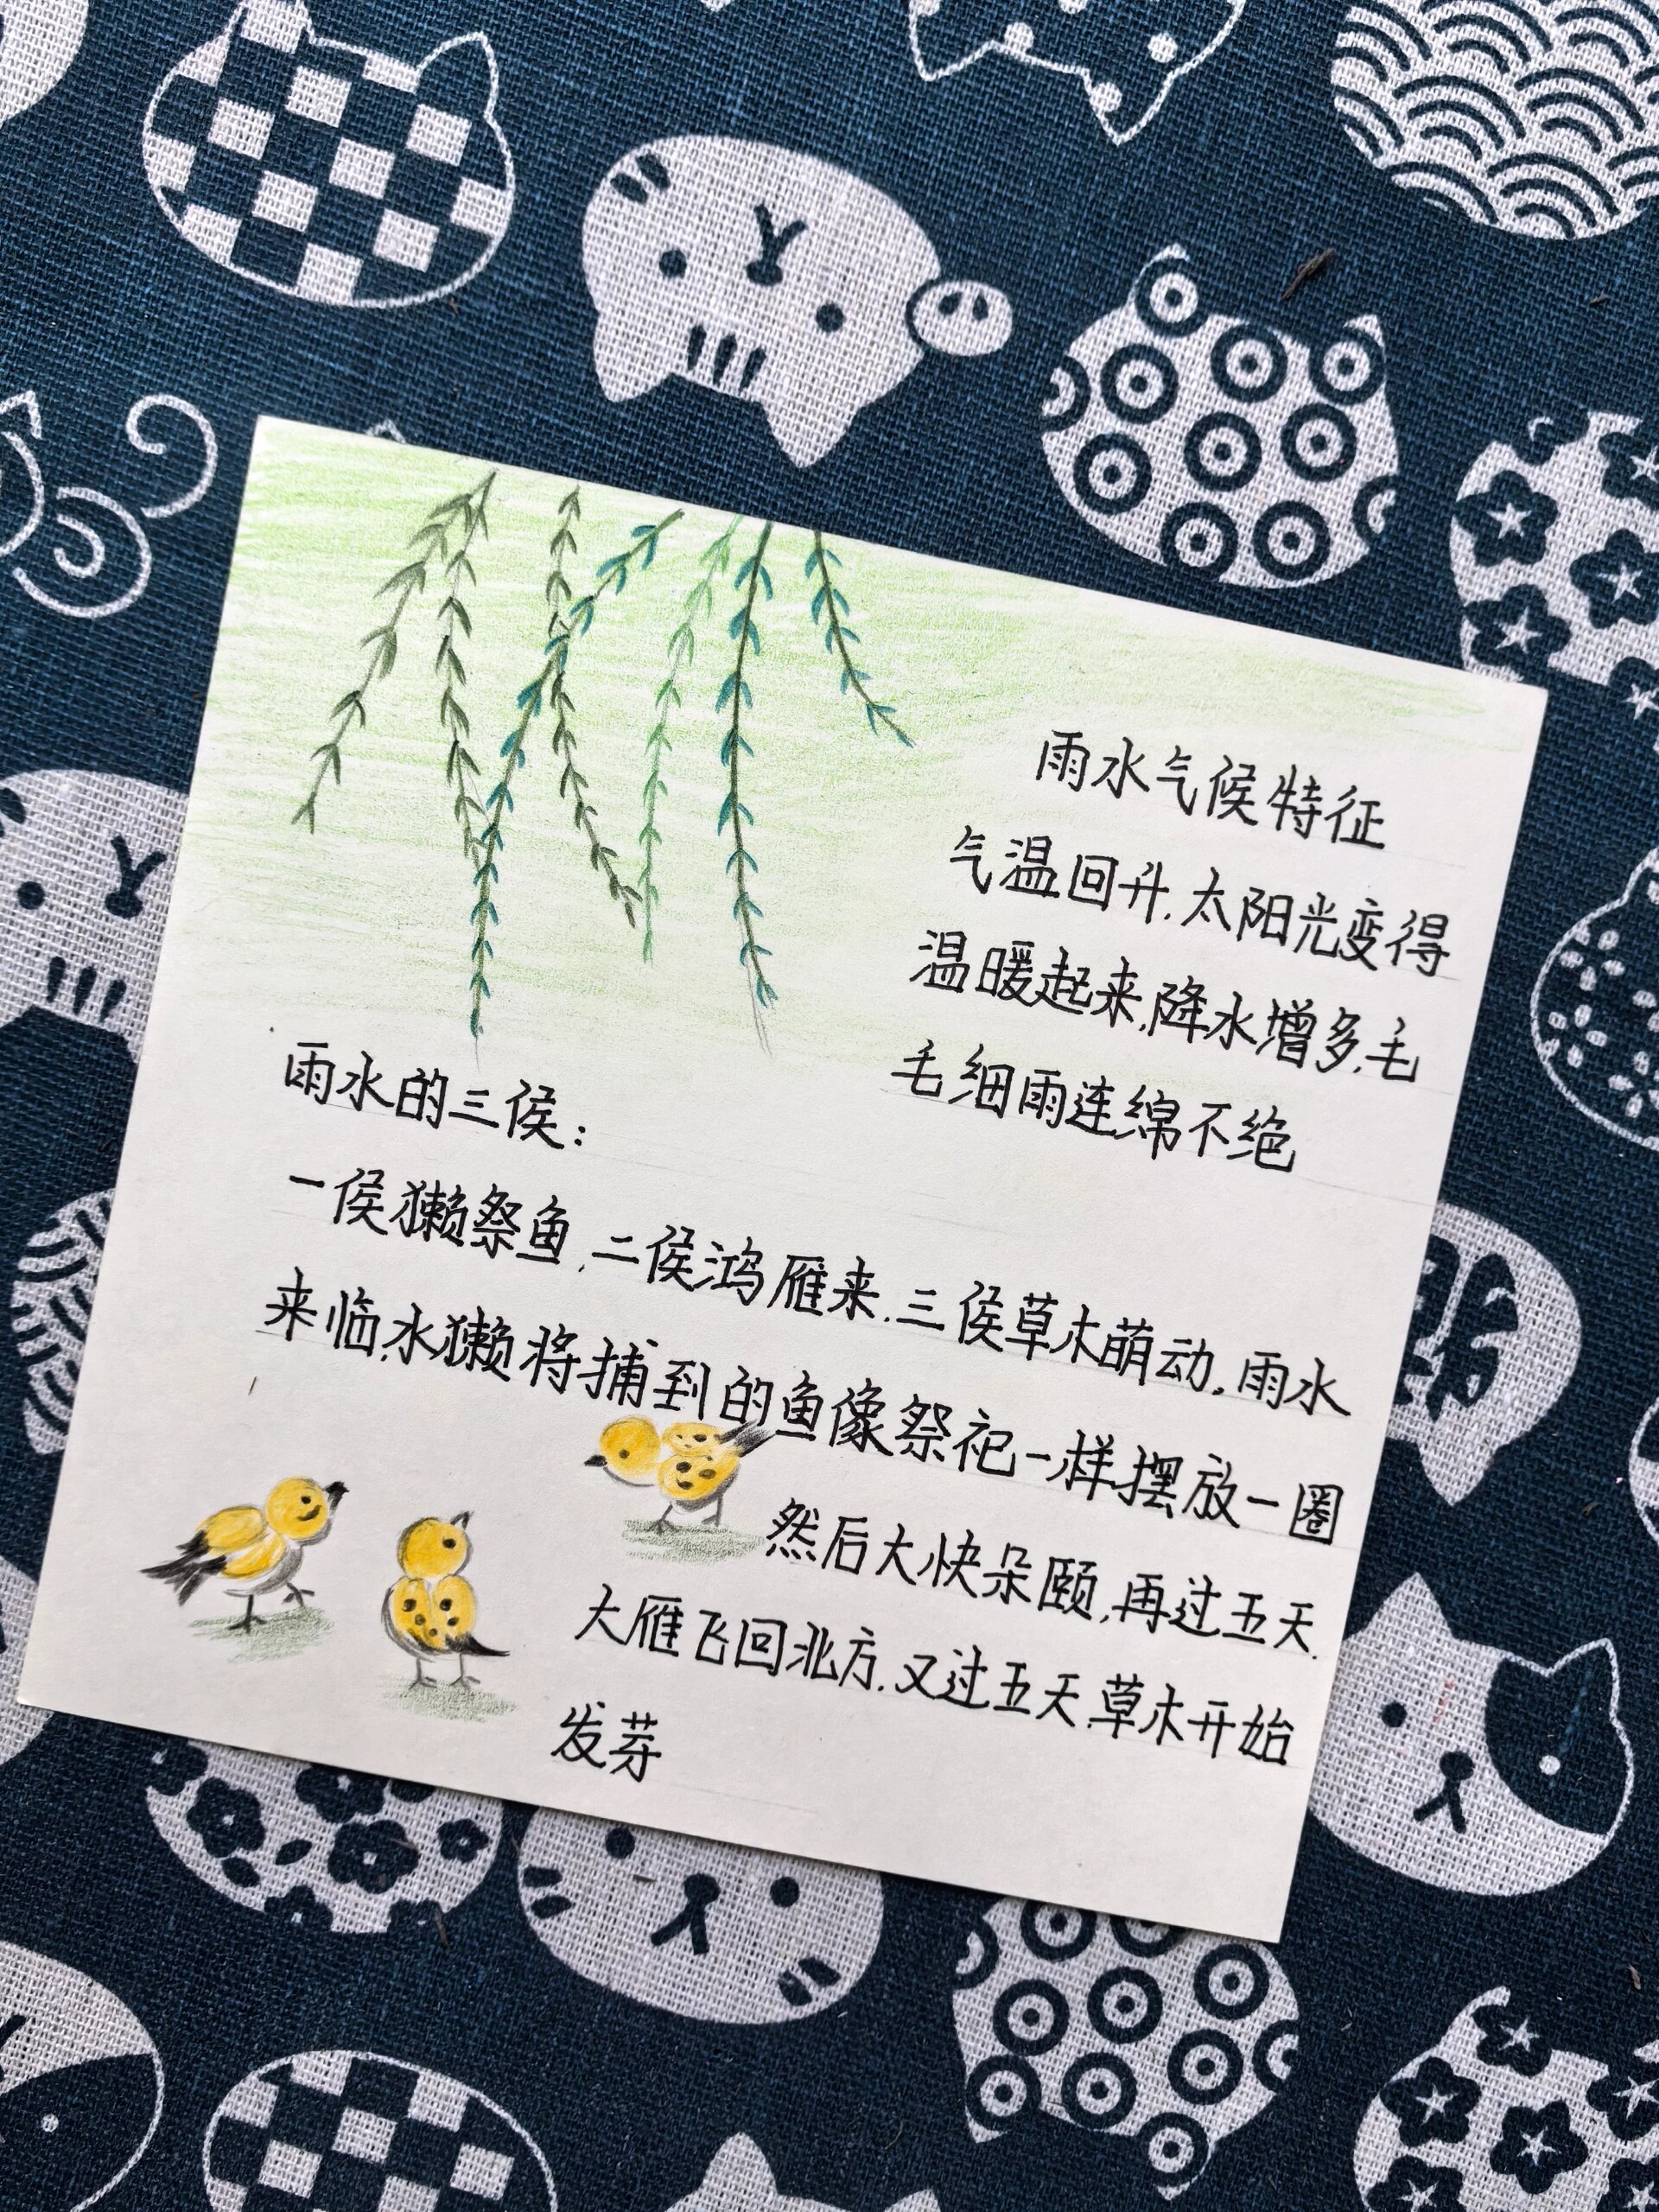 雨水气候特征
气温回升.太阳光变得
温暖起来.降水增多.毛
毛细雨连绵不绝
雨水的三侯:
一侯獭祭鱼.二侯鸿雁来.三侯草木萌动.雨水
来临.水獭将捕到的鱼像祭祀一样摆放一圈
然后大快朵颐,再过五天.
大雁飞回北方.又过五天.草木开始
发芽